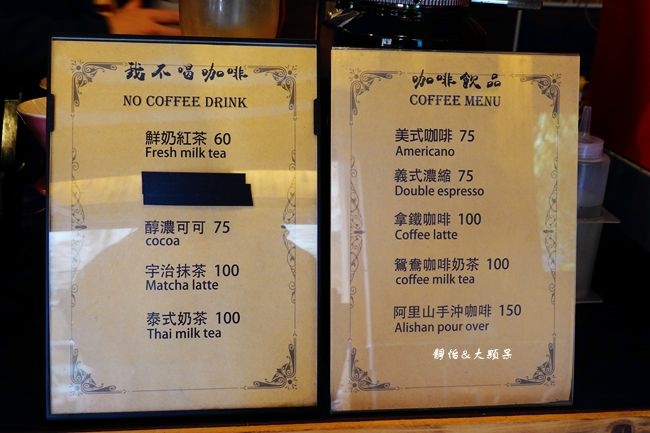 我不喝咖啡
NO COFFEE DRINK
鮮奶紅茶 60
Fresh milk tea
醇濃可可 75
cocoa
宇治抹茶 100
Matcha latte
泰式奶茶 100
Thai milk tea
咖啡飲品
COFFEE MENU
美式咖啡 75
Americano
義式濃縮 75
Double espresso
拿鐵咖啡 100
Coffee latte
鴛鴦咖啡奶茶 100
coffee milk tea
阿里山手沖咖啡 150
Alishan pour over
靜怡&大顆呆